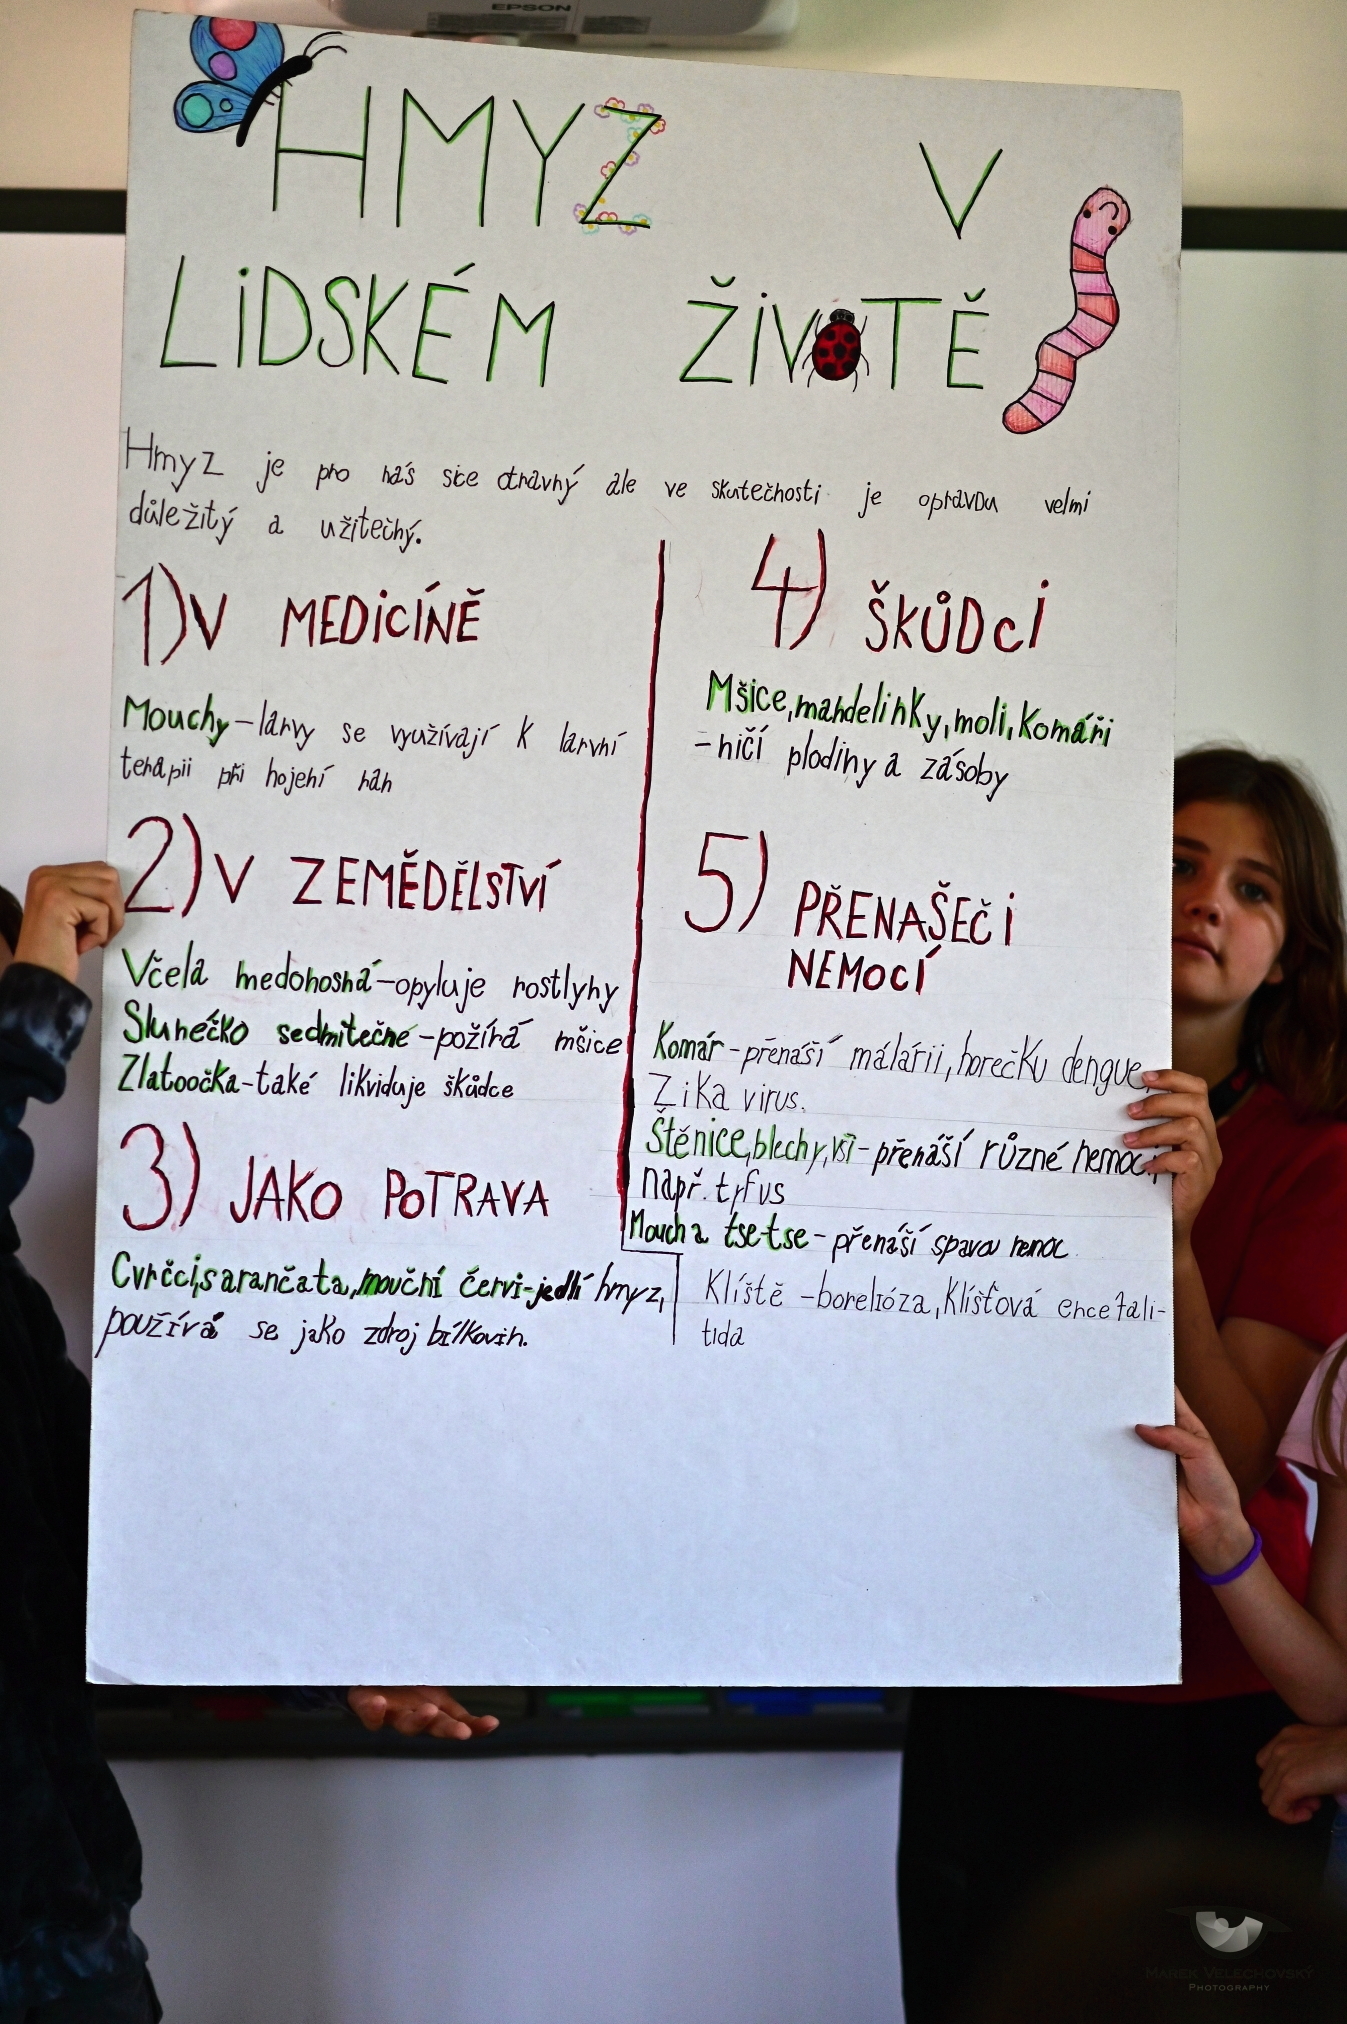 EPSON
HMYZ V
LIDSKÉM ŽIVOTĚ
Hmyz je pro nás sice otravný ale ve skutečnosti je opravdu velmi
důležitý a užitečný.
1) V MEDICÍNĚ
Mouchy - larvy se využívají k larvní
terapii při hojení ran
2) V ZEMĚDĚLSTVÍ
Včela medonosná - opyluje rostlyny
Slunéčko sedmitečné - požírá mšice
Zlatoočka - také likviduje škůdce
3) JAKO POTRAVA
Cvrčci, sarančata, mouční červi - jedlí hmyz,
používá se jako zdroj bílkovin.
4) ŠKŮDCI
Mšice, mandelinky, moli, komáři
- ničí plodiny a zásoby
5) PŘENAŠEČI
NEMOCÍ
Komár - přenáší málárii, horečku dengue,
Zika virus.
Štěnice, blechy, vši - přenáší různé nemoci,
např. tyfus
Moucha tse-tse - přenáší spavou nemoc
Klíště - borelióza, klíšťová encefali-
tida
MAREK VELECHOVSKÝ
PHOTOGRAPHY